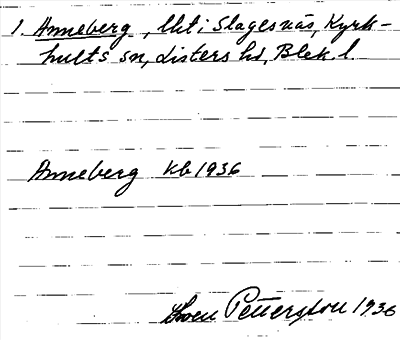 1. Anneberg, lht i Slagesnäs, Kyrk-
hults sn, Listers hd, Blek. l.
Anneberg Kb 1936
Sven Petersson 1936